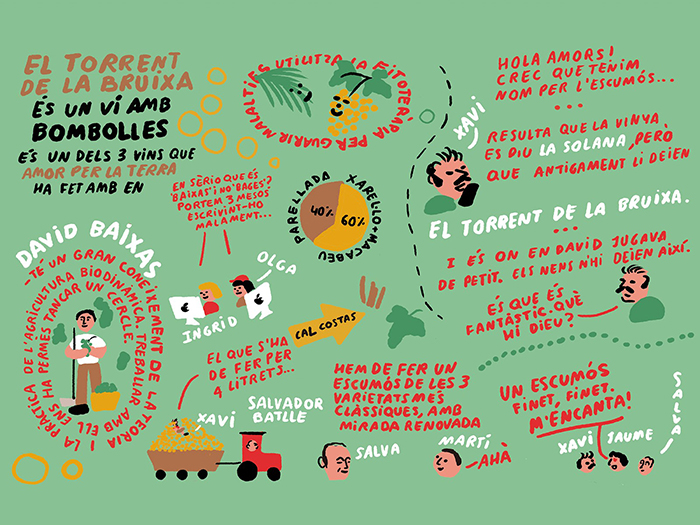 EL TORRENT
DE LA BRUIXA
ÉS UN VI AMB
BOMBOLLES
ÉS UN DELS 3 VINS QUE
AMOR PER LA TERRA
HA FET AMB EN
DAVID BAIXAS
-TÉ UN GRAN CONEIXEMENT DE LA TEORIA
I LA PRÀCTICA DE L'AGRICULTURA BIODINÀMICA. TREBALLAR AMB ELL
ENS HA PERMÈS TANCAR UN CERCLE.
UTILITZA LA FITOTERÀPIA PER GUARIR MALALTIES
EN SÈRIO QUE ÉS
'BAIXAS' I NO 'BAGES'?
PORTEM 3 MESOS
ESCRIVINT-HO
MALAMENT...
OLGA
INGRID
PARELLADA
XAREL·LO+MACABEU
40%
60%
CAL COSTAS
EL QUE S'HA
DE FER PER
4 LITRETS...
XAVI
SALVADOR
BATLLE
HOLA AMORS!
CREC QUE TENIM
NOM PER L'ESCUMÓS...
...
XAVI
RESULTA QUE LA VINYA
ES DIU LA SOLANA, PERÒ
QUE ANTIGAMENT LI DEIEN
EL TORRENT DE LA BRUIXA.
...
I ÉS ON EN DAVID JUGAVA
DE PETIT. ELS NENS N'HI DEIEN AIXÍ.
ÉS QUE ÉS
FANTÀSTIC. QUÈ
HI DIEU?
HEM DE FER UN
ESCUMÓS DE LES 3
VARIETATS MÉS
CLÀSSIQUES, AMB
MIRADA RENOVADA
SALVA
MARTÍ
-AHÀ
UN ESCUMÓS
FINET, FINET.
M'ENCANTA!
XAVI
JAUME
SALVA